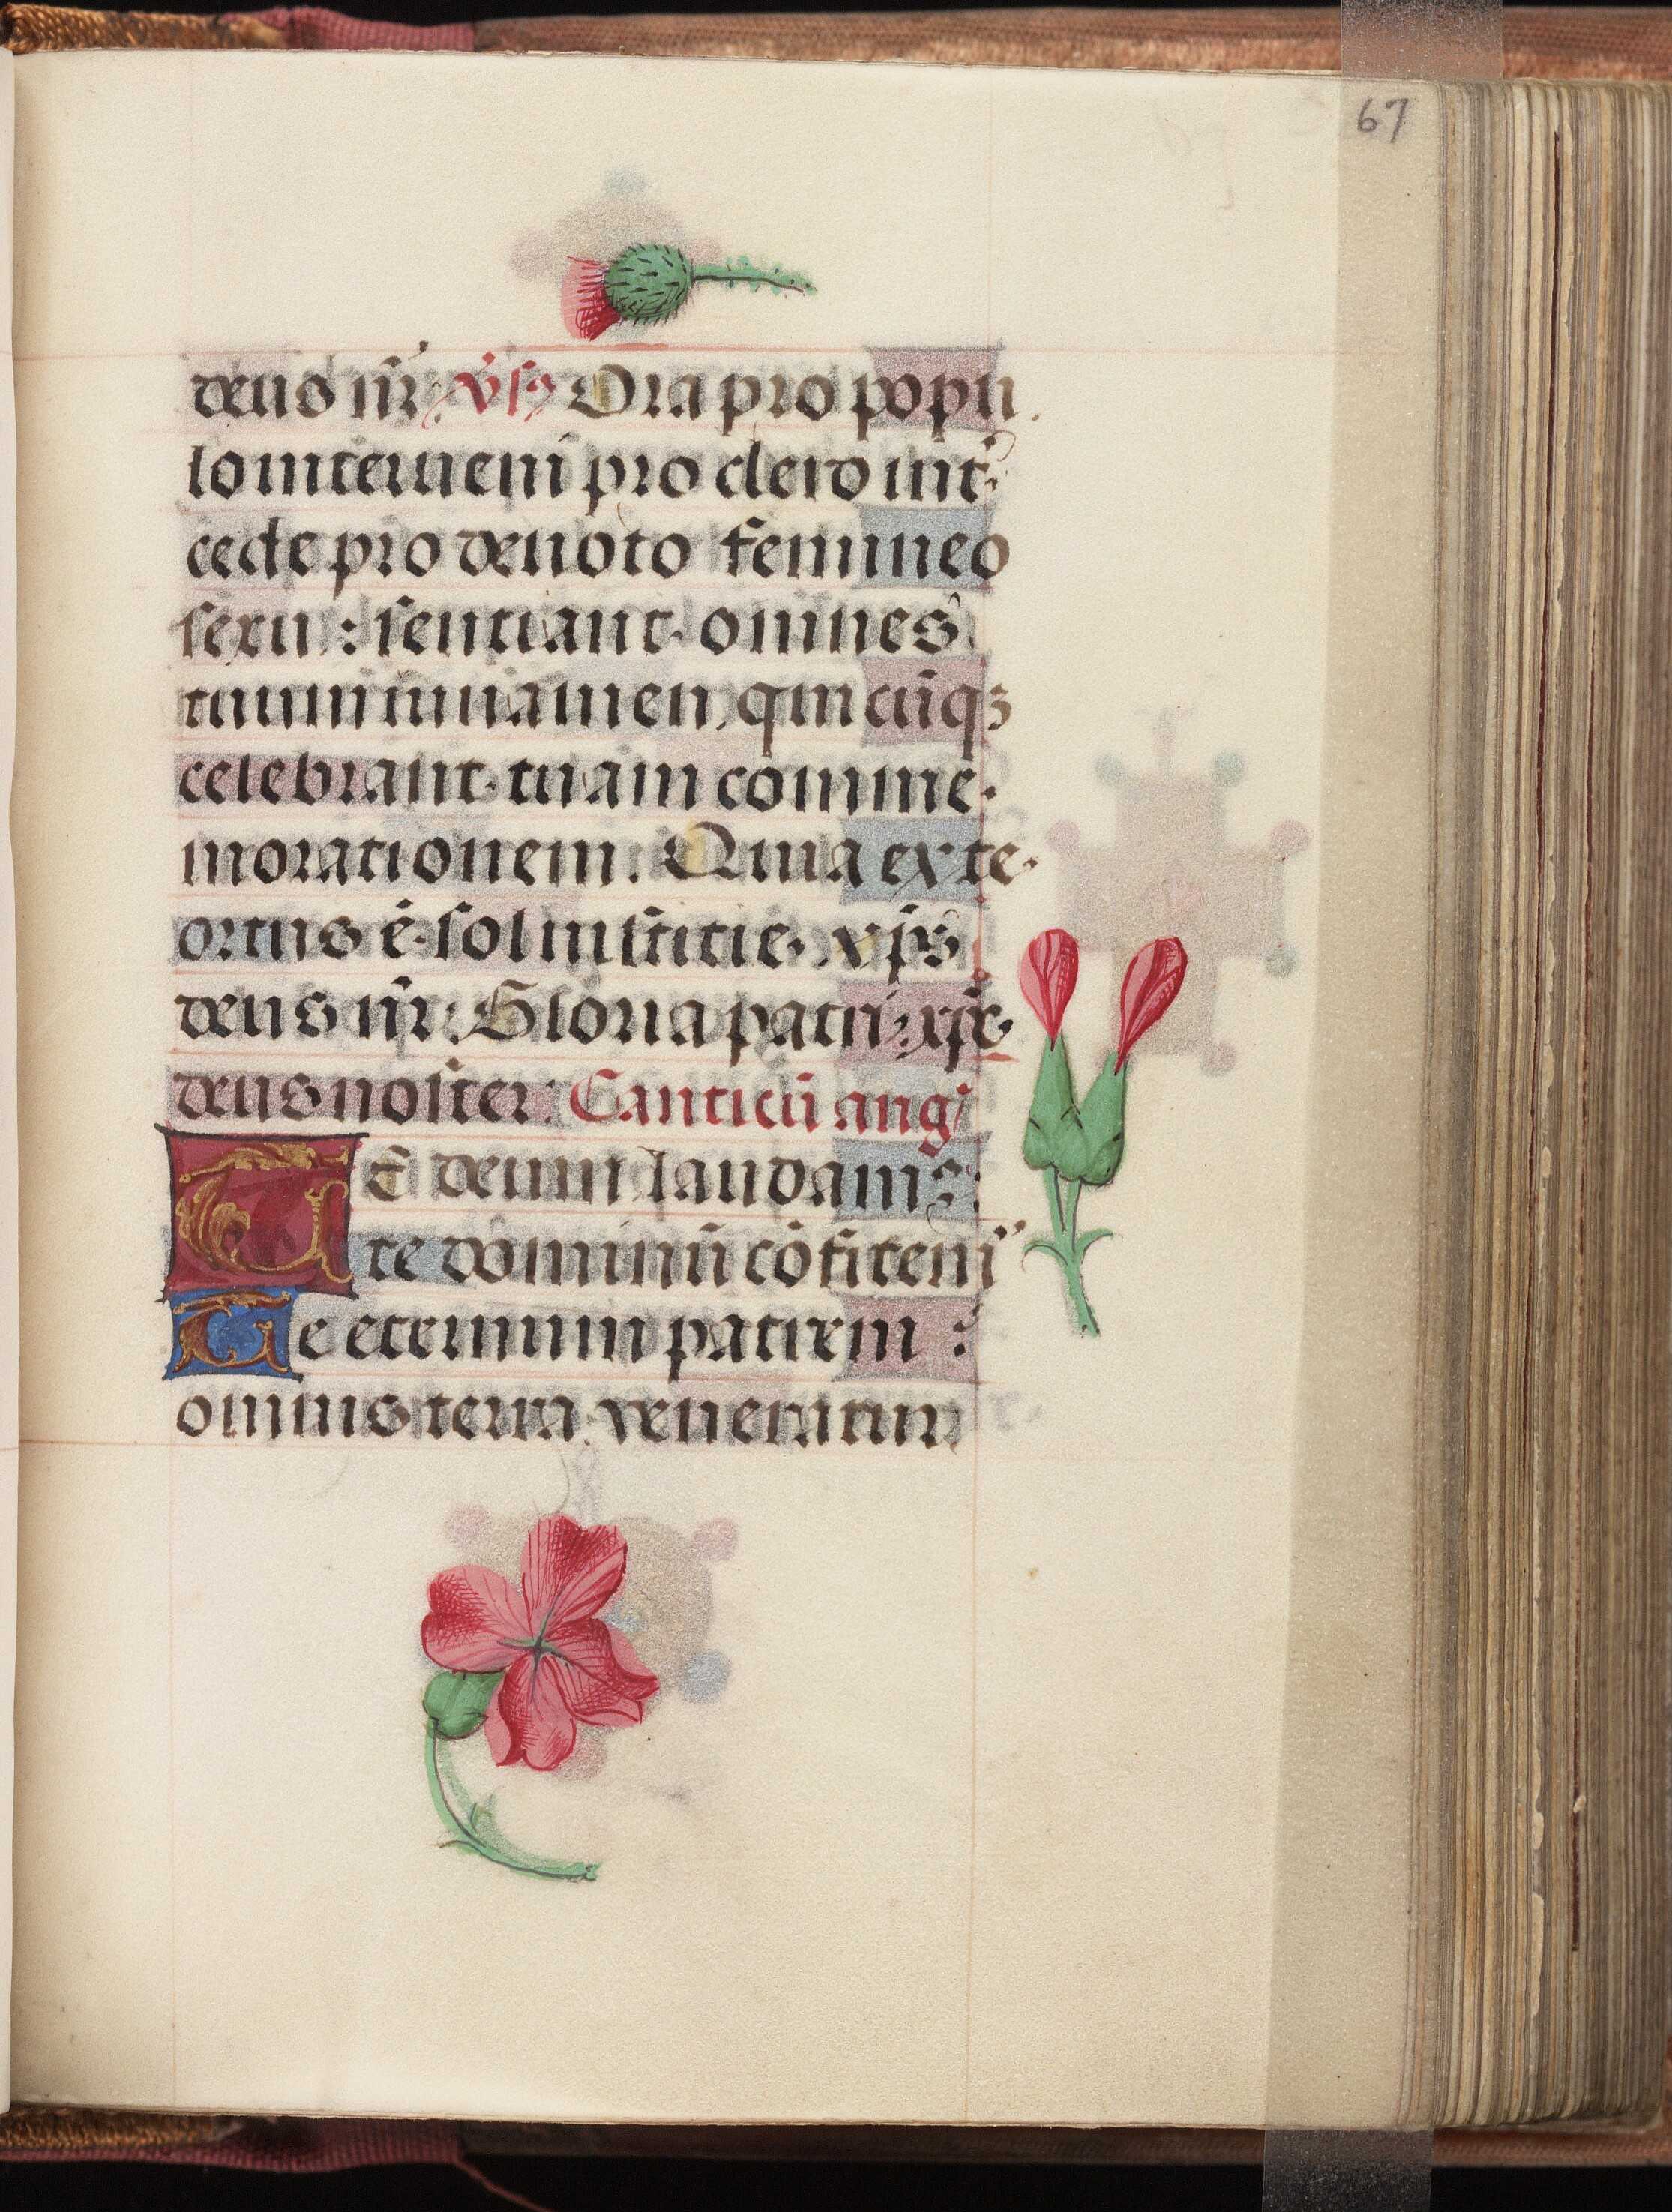 67
deus nr̄ v̄sꝰ Ora pro popu
lo interueni pro clero int̾
cede pro deuoto femineo
sexu : sentiant omnes
tuum iuuamen quicūqꝫ
celebrant tuam comme
morationem. Quia ex te
ortus ē sol iusticie xp̄s
deus nr̄: Gloria patri xp̄c
deus noster: Canticū ang̾
TE deum laudamꝰ:
te dominū cōfitem̾
Te eternum patrem :
omnis terra veneratur